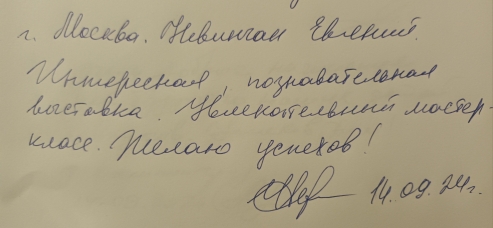 г. Москва. Евгений.
Интересная, познавательная
выставка. Увлекательный мастер-
класс. Желаю успехов!
14.09.24г.